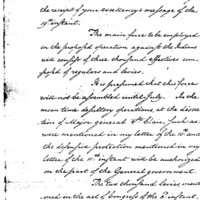 the receipt of your excellency's message of the
19th instant.
The main force to be employed
in the proposed operation against the Indians
will consist of three thousand effectives com-
posed of regulars and levies.
It is presumed that this force
will not be assembled until July. In the
mean time desultory operations, at the discre-
tion of Major general St. Clair, such as
were mentioned in my letter of the 10th and
the defensive protection mentioned in my
letter of the 11th instant will be authorized
on the part of the General government.
The two thousand levies menti-
oned in the act of Congress of the 3d instant,